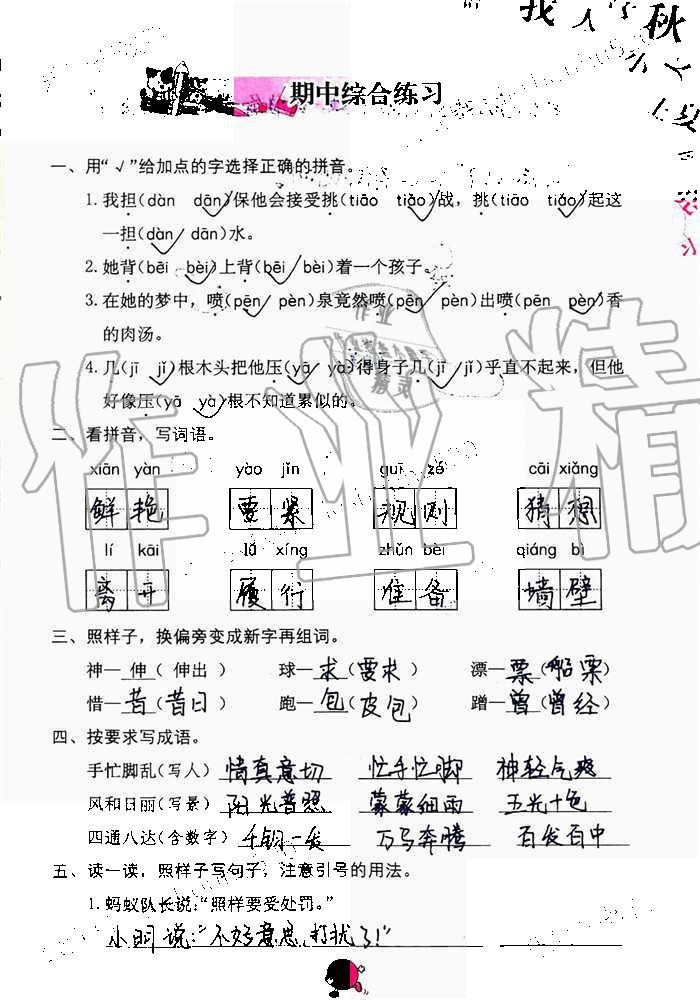 我 人 秋
期中综合练习
一、用“√”给加点的字选择正确的拼音。
1.我担(dàn dān)保他会接受挑(tiāo tiǎo)战，挑(tiāo tiǎo)起这
一担(dàn dān)水。
2.她背(bēi bèi)上背(bēi bèi)着一个孩子。
3.在她的梦中，喷(pēn pèn)泉竟然喷(pēn pèn)出喷(pēn pèn)香
的肉汤。
4.几(jī jǐ)根木头把他压(yā yà)得身子几(jī jǐ)乎直不起来，但他
好像压(yā yà)根不知道累似的。
二、看拼音，写词语。
xiān yàn yào jǐn guī zé cāi xiǎng
鲜艳 要紧 规则 猜想
lí kāi lǚ xíng zhǔn bèi qiáng bì
离开 履行 准备 墙壁
三、照样子，换偏旁变成新字再组词。
神—伸(伸出) 球—求(要求) 漂—票(船票)
惜—昔(昔日) 跑—包(皮包) 蹭—曾(曾经)
四、按要求写成语。
手忙脚乱(写人) 情真意切 忙手忙脚 神轻气爽
风和日丽(写景) 阳光普照 蒙蒙细雨 五光十色
四通八达(含数字) 千钧一发 万马奔腾 百发百中
五、读一读，照样子写句子，注意引号的用法。
1.蚂蚁队长说：“照样要受处罚。”
小明说：“不好意思，打扰了！”
作业精
作业
精灵